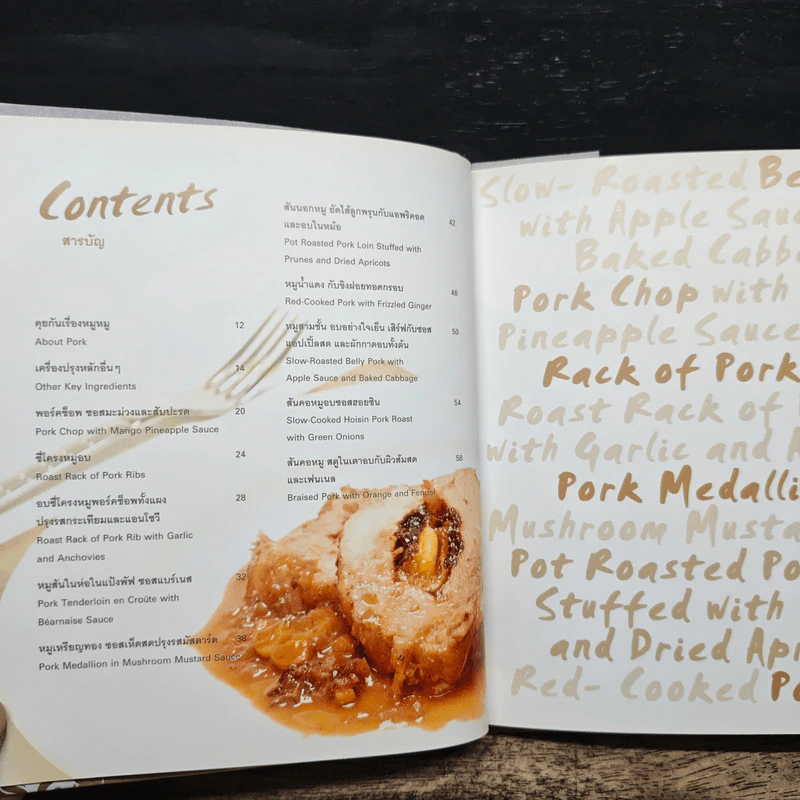 Contents
สารบัญ
คุยกันเรื่องหมูหมู 12
About Pork
เครื่องปรุงหลักอื่นๆ 14
Other Key Ingredients
พอร์คช็อพ ซอสมะม่วงและสับปะรด 20
Pork Chop with Mango Pineapple Sauce
ซี่โครงหมูอบ 24
Roast Rack of Pork Ribs
อบซี่โครงหมูพอร์คช็อพทั้งแผง 28
ปรุงรสกระเทียมและแอนโชวี
Roast Rack of Pork Rib with Garlic
and Anchovies
หมูสันในห่อในแป้งพัฟ ซอสแบร์เนส 32
Pork Tenderloin en Croûte with
Béarnaise Sauce
หมูเหรียญทอง ซอสเห็ดสดปรุงรสมัสตาร์ด 38
Pork Medallion in Mushroom Mustard Sauce
สันนอกหมู ยัดไส้ลูกพรุนกับแอพริคอต 42
และอบในหม้อ
Pot Roasted Pork Loin Stuffed with
Prunes and Dried Apricots
หมูน้ำแดง กับขิงฝอยทอดกรอบ 46
Red-Cooked Pork with Frizzled Ginger
หมูสามชั้น อบอย่างใจเย็น เสิร์ฟกับซอส 50
แอปเปิ้ลสด และผักกาดอบทั้งต้น
Slow-Roasted Belly Pork with
Apple Sauce and Baked Cabbage
สันคอหมูอบซอสฮอยซิน 54
Slow-Cooked Hoisin Pork Roast
with Green Onions
สันคอหมู สตูในเตาอบกับผิวส้มสด 58
และเฟนเนล
Braised Pork with Orange and Fennel
Slow- Roasted Be
with Apple Sauc
Baked Cabba
Pork Chop with
Pineapple Sauce
Rack of Pork
Roast Rack of
with Garlic and A
Pork Medalli
Mushroom Musta
Pot Roasted Po
Stuffed with
and Dried Apr
Red- Cooked Po